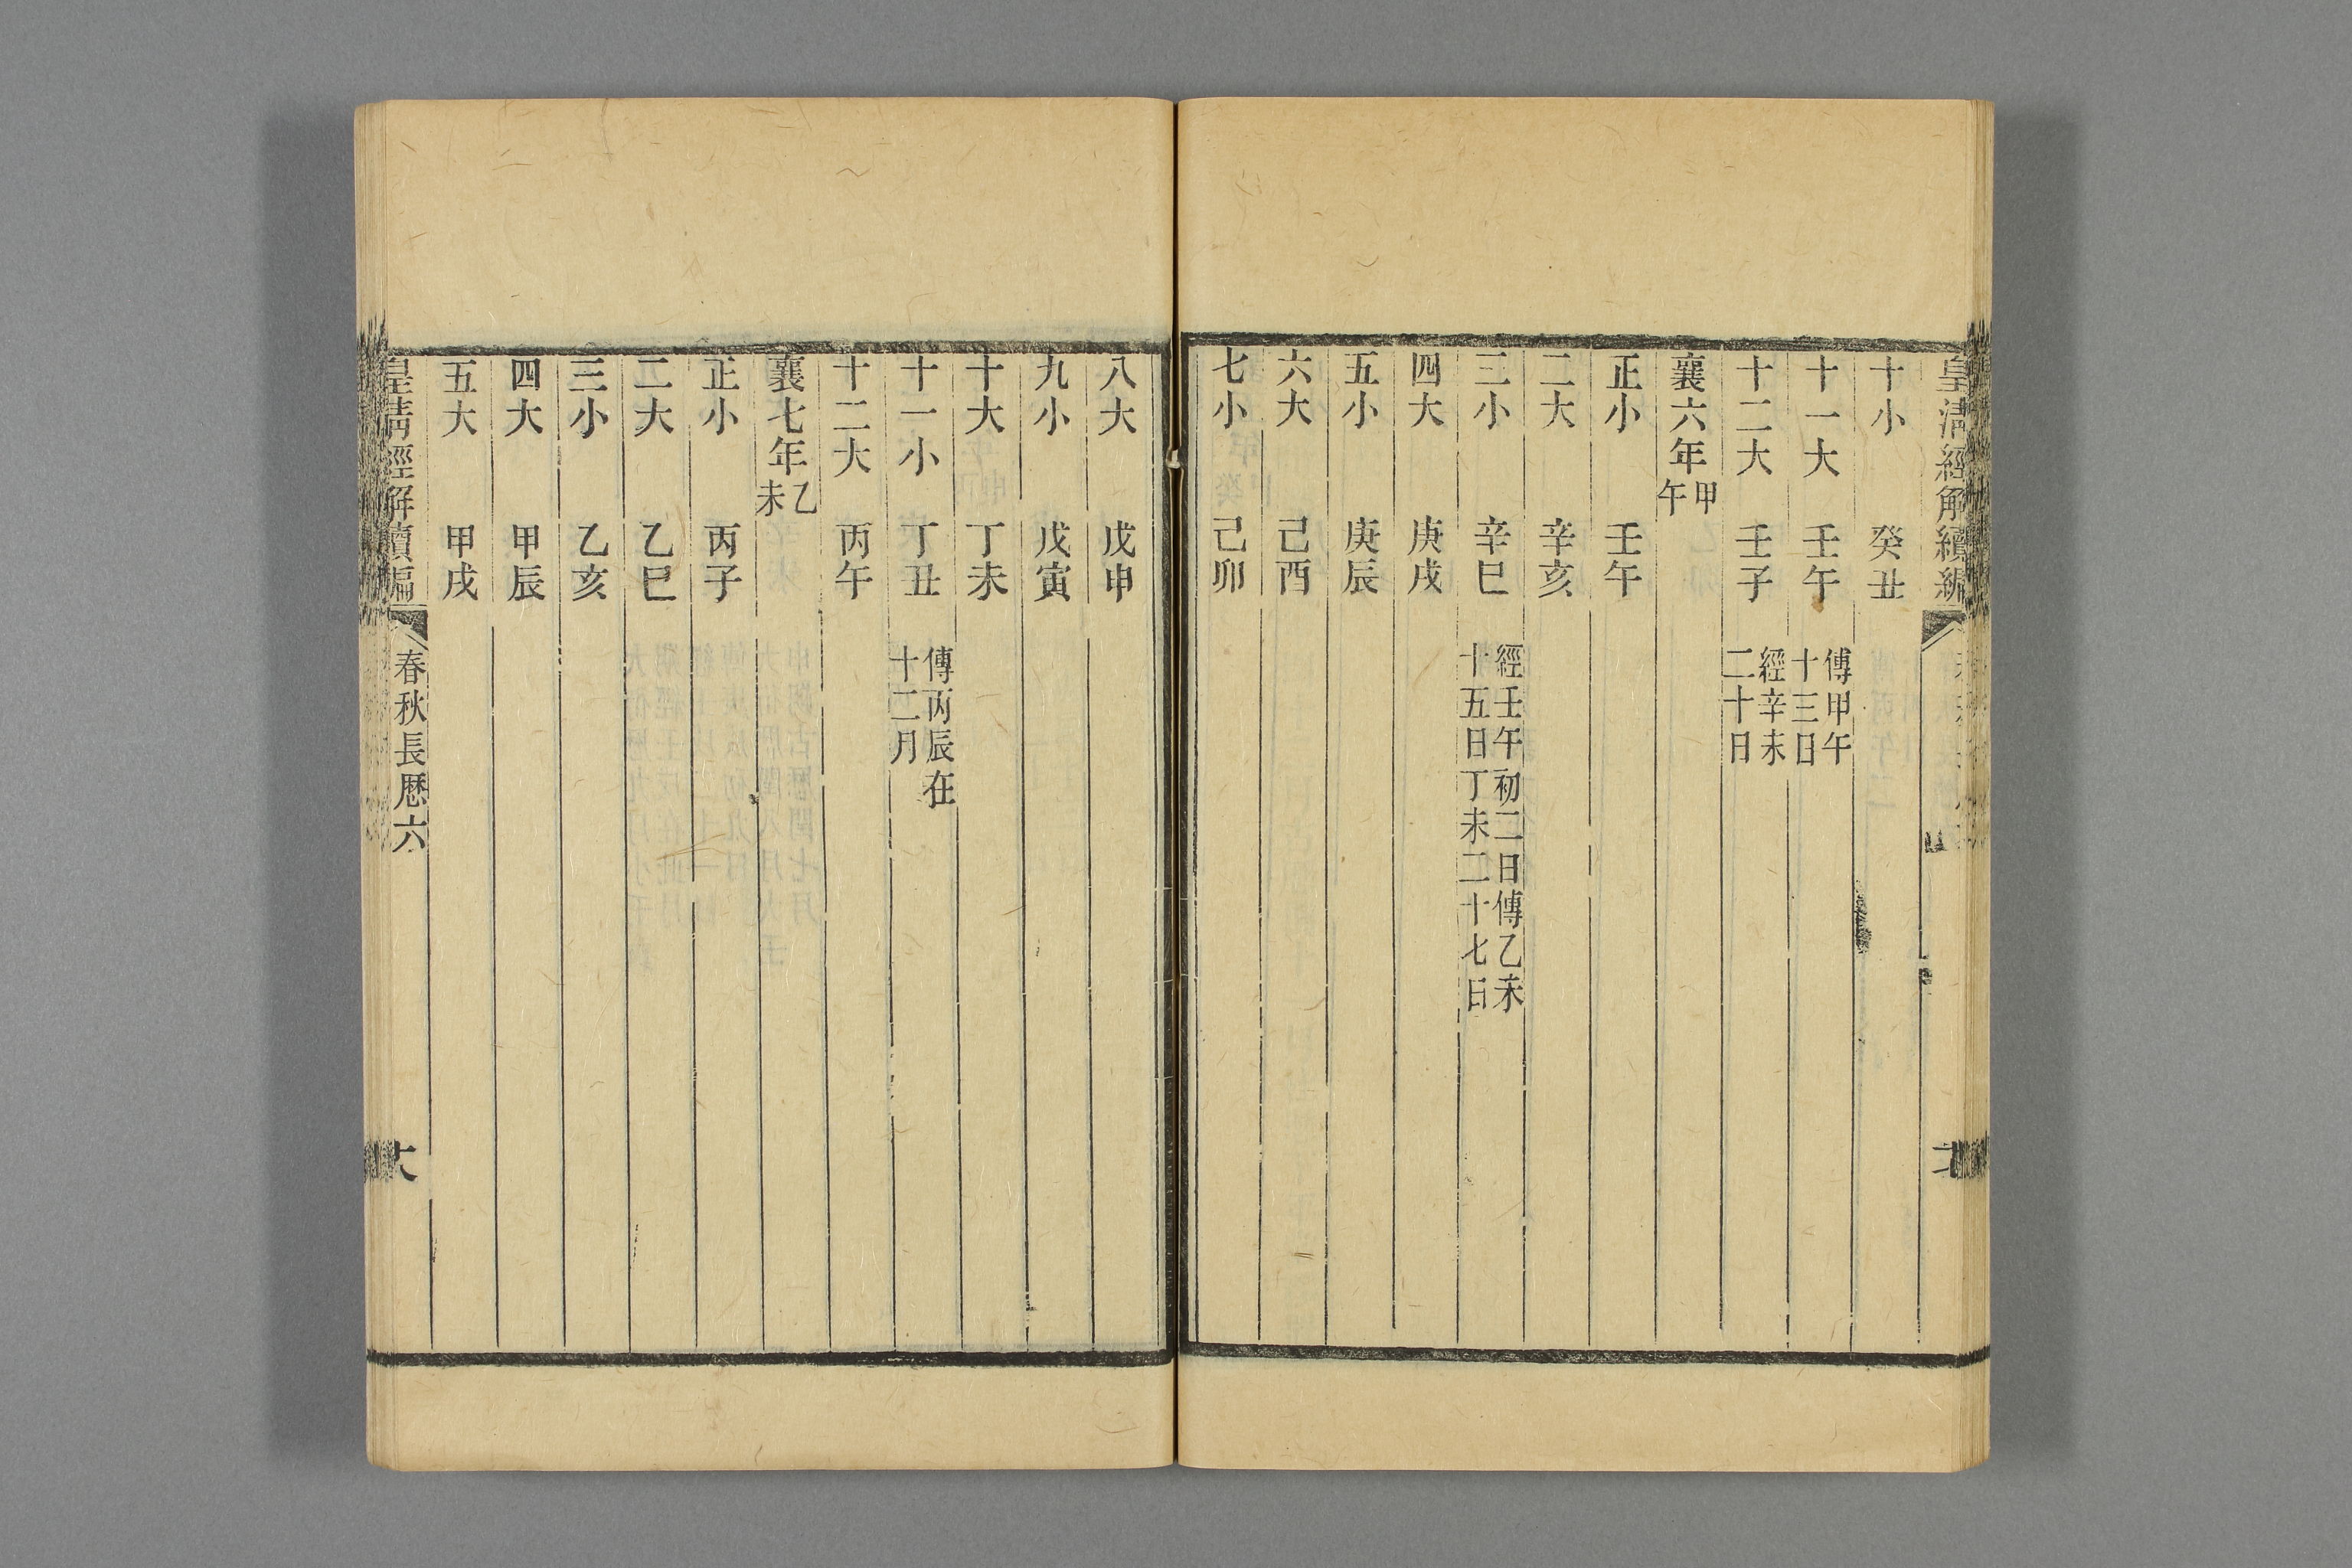 皇清經解續編
十小　癸丑
十一大　壬午　傳甲午十三日
十二大　壬子　經辛未二十日
襄六年甲午
正小　壬午
二大　辛亥
三小　辛巳　經壬午初二日傳乙未十五日丁未二十七日
四大　庚戌
五小　庚辰
六大　己酉
七小　己卯
八大　戊申
九小　戊寅
十大　丁未
十一小　丁丑　傳丙辰在十二月
十二大　丙午
襄七年乙未
正小　丙子
二大　乙巳
三小　乙亥
四大　甲辰
五大　甲戌
皇清經解續編　春秋長歷六